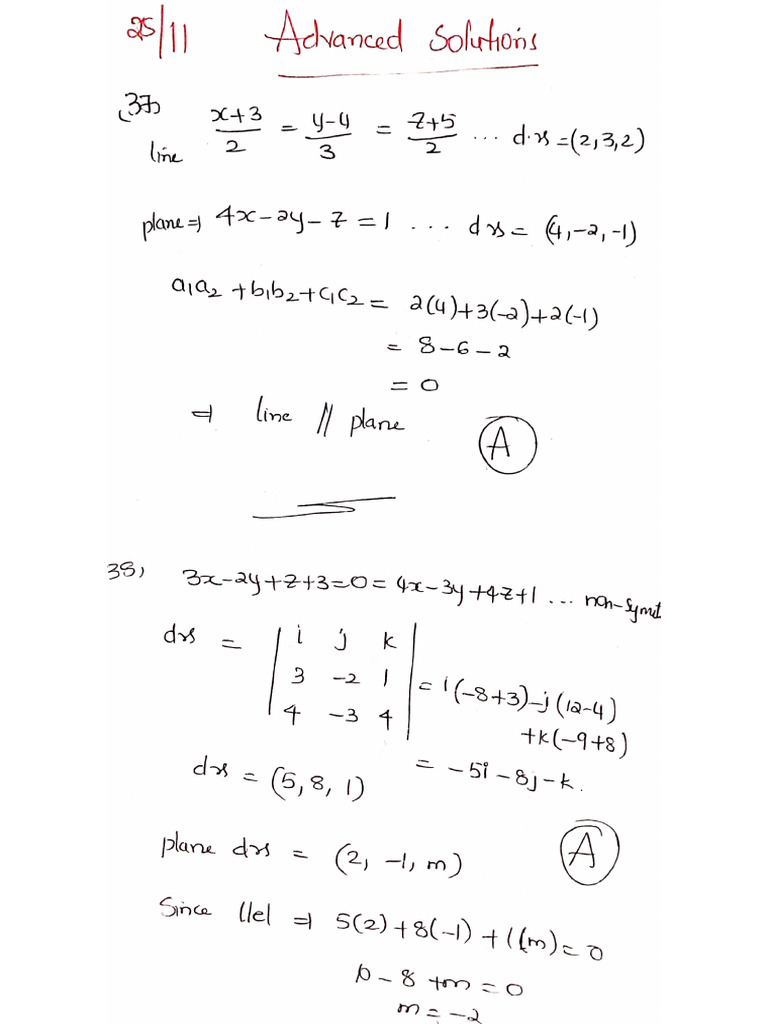 25/11 Advanced Solutions
(37)
line x+3/2 = y-4/3 = z+5/2 ... d.rs = (2,3,2)
plane ⇒ 4x-2y-z=1 ... drs = (4,-2,-1)
a₁a₂+b₁b₂+c₁c₂ = 2(4)+3(-2)+2(-1)
= 8-6-2
= 0
⇒ line // plane
A
38) 3x-2y+z+3=0=4x-3y+4z+1 ... non-symet
drs = | i j k |
| 3 -2 1 | = i(-8+3)-j(12-4)
| 4 -3 4 | +k(-9+8)
= -5i-8j-k.
drs = (5,8,1)
A
plane drs = (2,-1,m)
Since llel ⇒ 5(2)+8(-1)+1(m)=0
10-8+m=0
m=-2